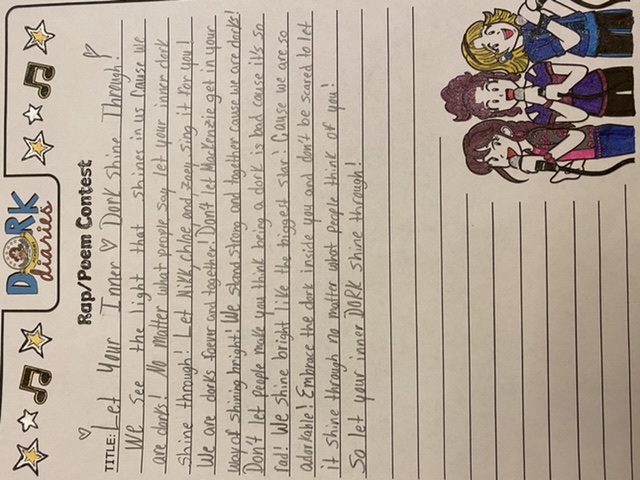 DORK
diaries
Rap/Poem Contest
TITLE: Let Your Inner ♡ Dork Shine Through!
We see the light that shines in us cause we
are dorks! No matter what people say let your inner dork
shine through! Let Nikki Chloe and Zoey sing it for you!
We are dorks forever and together! Don't let Mackenzie get in your
way of shining bright! We stand strong and together cause we are dorks!
Don't let people make you think being a dork is bad cause it's so
rad! We shine bright like the biggest star! Cause we are so
adorkable! Embrace the dork inside you and don't be scared to let
it shine through no matter what people think of you!
So let your inner DORK shine through!